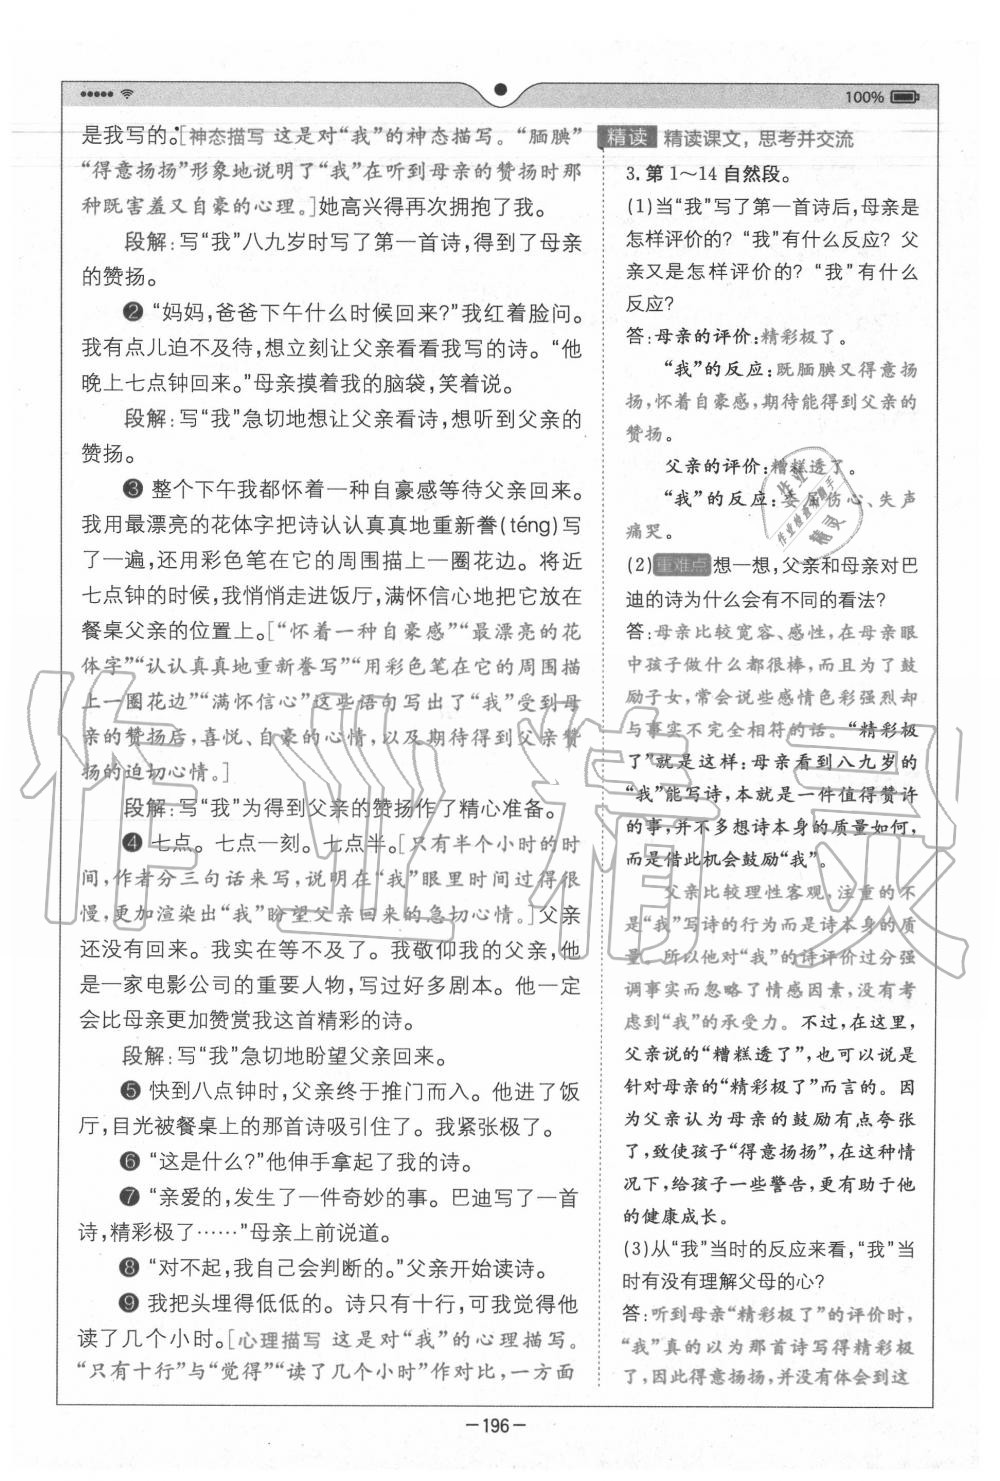 100%
是我写的。[神态描写 这是对“我”的神态描写。“腼腆”
“得意扬扬”形象地说明了“我”在听到母亲的赞扬时那
种既害羞又自豪的心理。]她高兴得再次拥抱了我。
段解:写“我”八九岁时写了第一首诗,得到了母亲
的赞扬。
❷ “妈妈,爸爸下午什么时候回来?”我红着脸问。
我有点儿迫不及待,想立刻让父亲看看我写的诗。“他
晚上七点钟回来。”母亲摸着我的脑袋,笑着说。
段解:写“我”急切地想让父亲看诗,想听到父亲的
赞扬。
❸ 整个下午我都怀着一种自豪感等待父亲回来。
我用最漂亮的花体字把诗认认真真地重新誊(téng)写
了一遍,还用彩色笔在它的周围描上一圈花边。将近
七点钟的时候,我悄悄走进饭厅,满怀信心地把它放在
餐桌父亲的位置上。[“怀着一种自豪感”“最漂亮的花
体字”“认认真真地重新誊写”“用彩色笔在它的周围描
上一圈花边”“满怀信心”这些语句写出了“我”受到母
亲的赞扬后,喜悦、自豪的心情,以及期待得到父亲赞
扬的迫切心情。]
段解:写“我”为得到父亲的赞扬作了精心准备。
❹ 七点。七点一刻。七点半。[只有半个小时的时
间,作者分三句话来写,说明在“我”眼里时间过得很
慢,更加渲染出“我”盼望父亲回来的急切心情。]父亲
还没有回来。我实在等不及了。我敬仰我的父亲,他
是一家电影公司的重要人物,写过好多剧本。他一定
会比母亲更加赞赏我这首精彩的诗。
段解:写“我”急切地盼望父亲回来。
❺ 快到八点钟时,父亲终于推门而入。他进了饭
厅,目光被餐桌上的那首诗吸引住了。我紧张极了。
❻ “这是什么?”他伸手拿起了我的诗。
❼ “亲爱的,发生了一件奇妙的事。巴迪写了一首
诗,精彩极了……”母亲上前说道。
❽ “对不起,我自己会判断的。”父亲开始读诗。
❾ 我把头埋得低低的。诗只有十行,可我觉得他
读了几个小时。[心理描写 这是对“我”的心理描写。
“只有十行”与“觉得”“读了几个小时”作对比,一方面
精读 精读课文，思考并交流
3. 第 1～14 自然段。
(1)当“我”写了第一首诗后,母亲是
怎样评价的? “我”有什么反应? 父
亲又是怎样评价的? “我”有什么
反应?
答:母亲的评价:精彩极了。
“我”的反应:既腼腆又得意扬
扬,怀着自豪感,期待能得到父亲的
赞扬。
父亲的评价:糟糕透了。
“我”的反应:委屈伤心、失声
痛哭。
(2)重难点 想一想,父亲和母亲对巴
迪的诗为什么会有不同的看法?
答:母亲比较宽容、感性,在母亲眼
中孩子做什么都很棒,而且为了鼓
励子女,常会说些感情色彩强烈却
与事实不完全相符的话。“精彩极
了”就是这样:母亲看到八九岁的
“我”能写诗,本就是一件值得赞许
的事,并不多想诗本身的质量如何,
而是借此机会鼓励“我”。
父亲比较理性客观,注重的不
是“我”写诗的行为而是诗本身的质
量。所以他对“我”的诗评价过分强
调事实而忽略了情感因素,没有考
虑到“我”的承受力。不过,在这里,
父亲说的“糟糕透了”,也可以说是
针对母亲的“精彩极了”而言的。因
为父亲认为母亲的鼓励有点夸张
了,致使孩子“得意扬扬”,在这种情
况下,给孩子一些警告,更有助于他
的健康成长。
(3)从“我”当时的反应来看,“我”当
时有没有理解父母的心?
答:听到母亲“精彩极了”的评价时,
“我”真的以为那首诗写得精彩极
了,因此得意扬扬,并没有体会到这
作业精灵
—196—